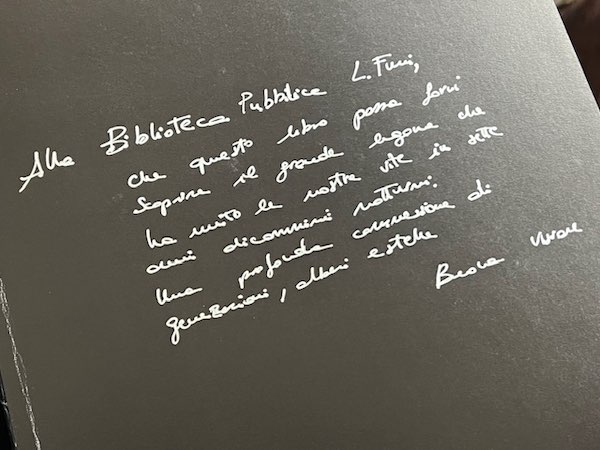 Alla Biblioteca Pubblica L. Fumi,
che questo libro possa farvi
scoprire il grande legame che
ha unito le nostre vite in sette
anni di cammini notturni.
Una profonda connessione di
generazioni, alberi e stelle
Buona visione